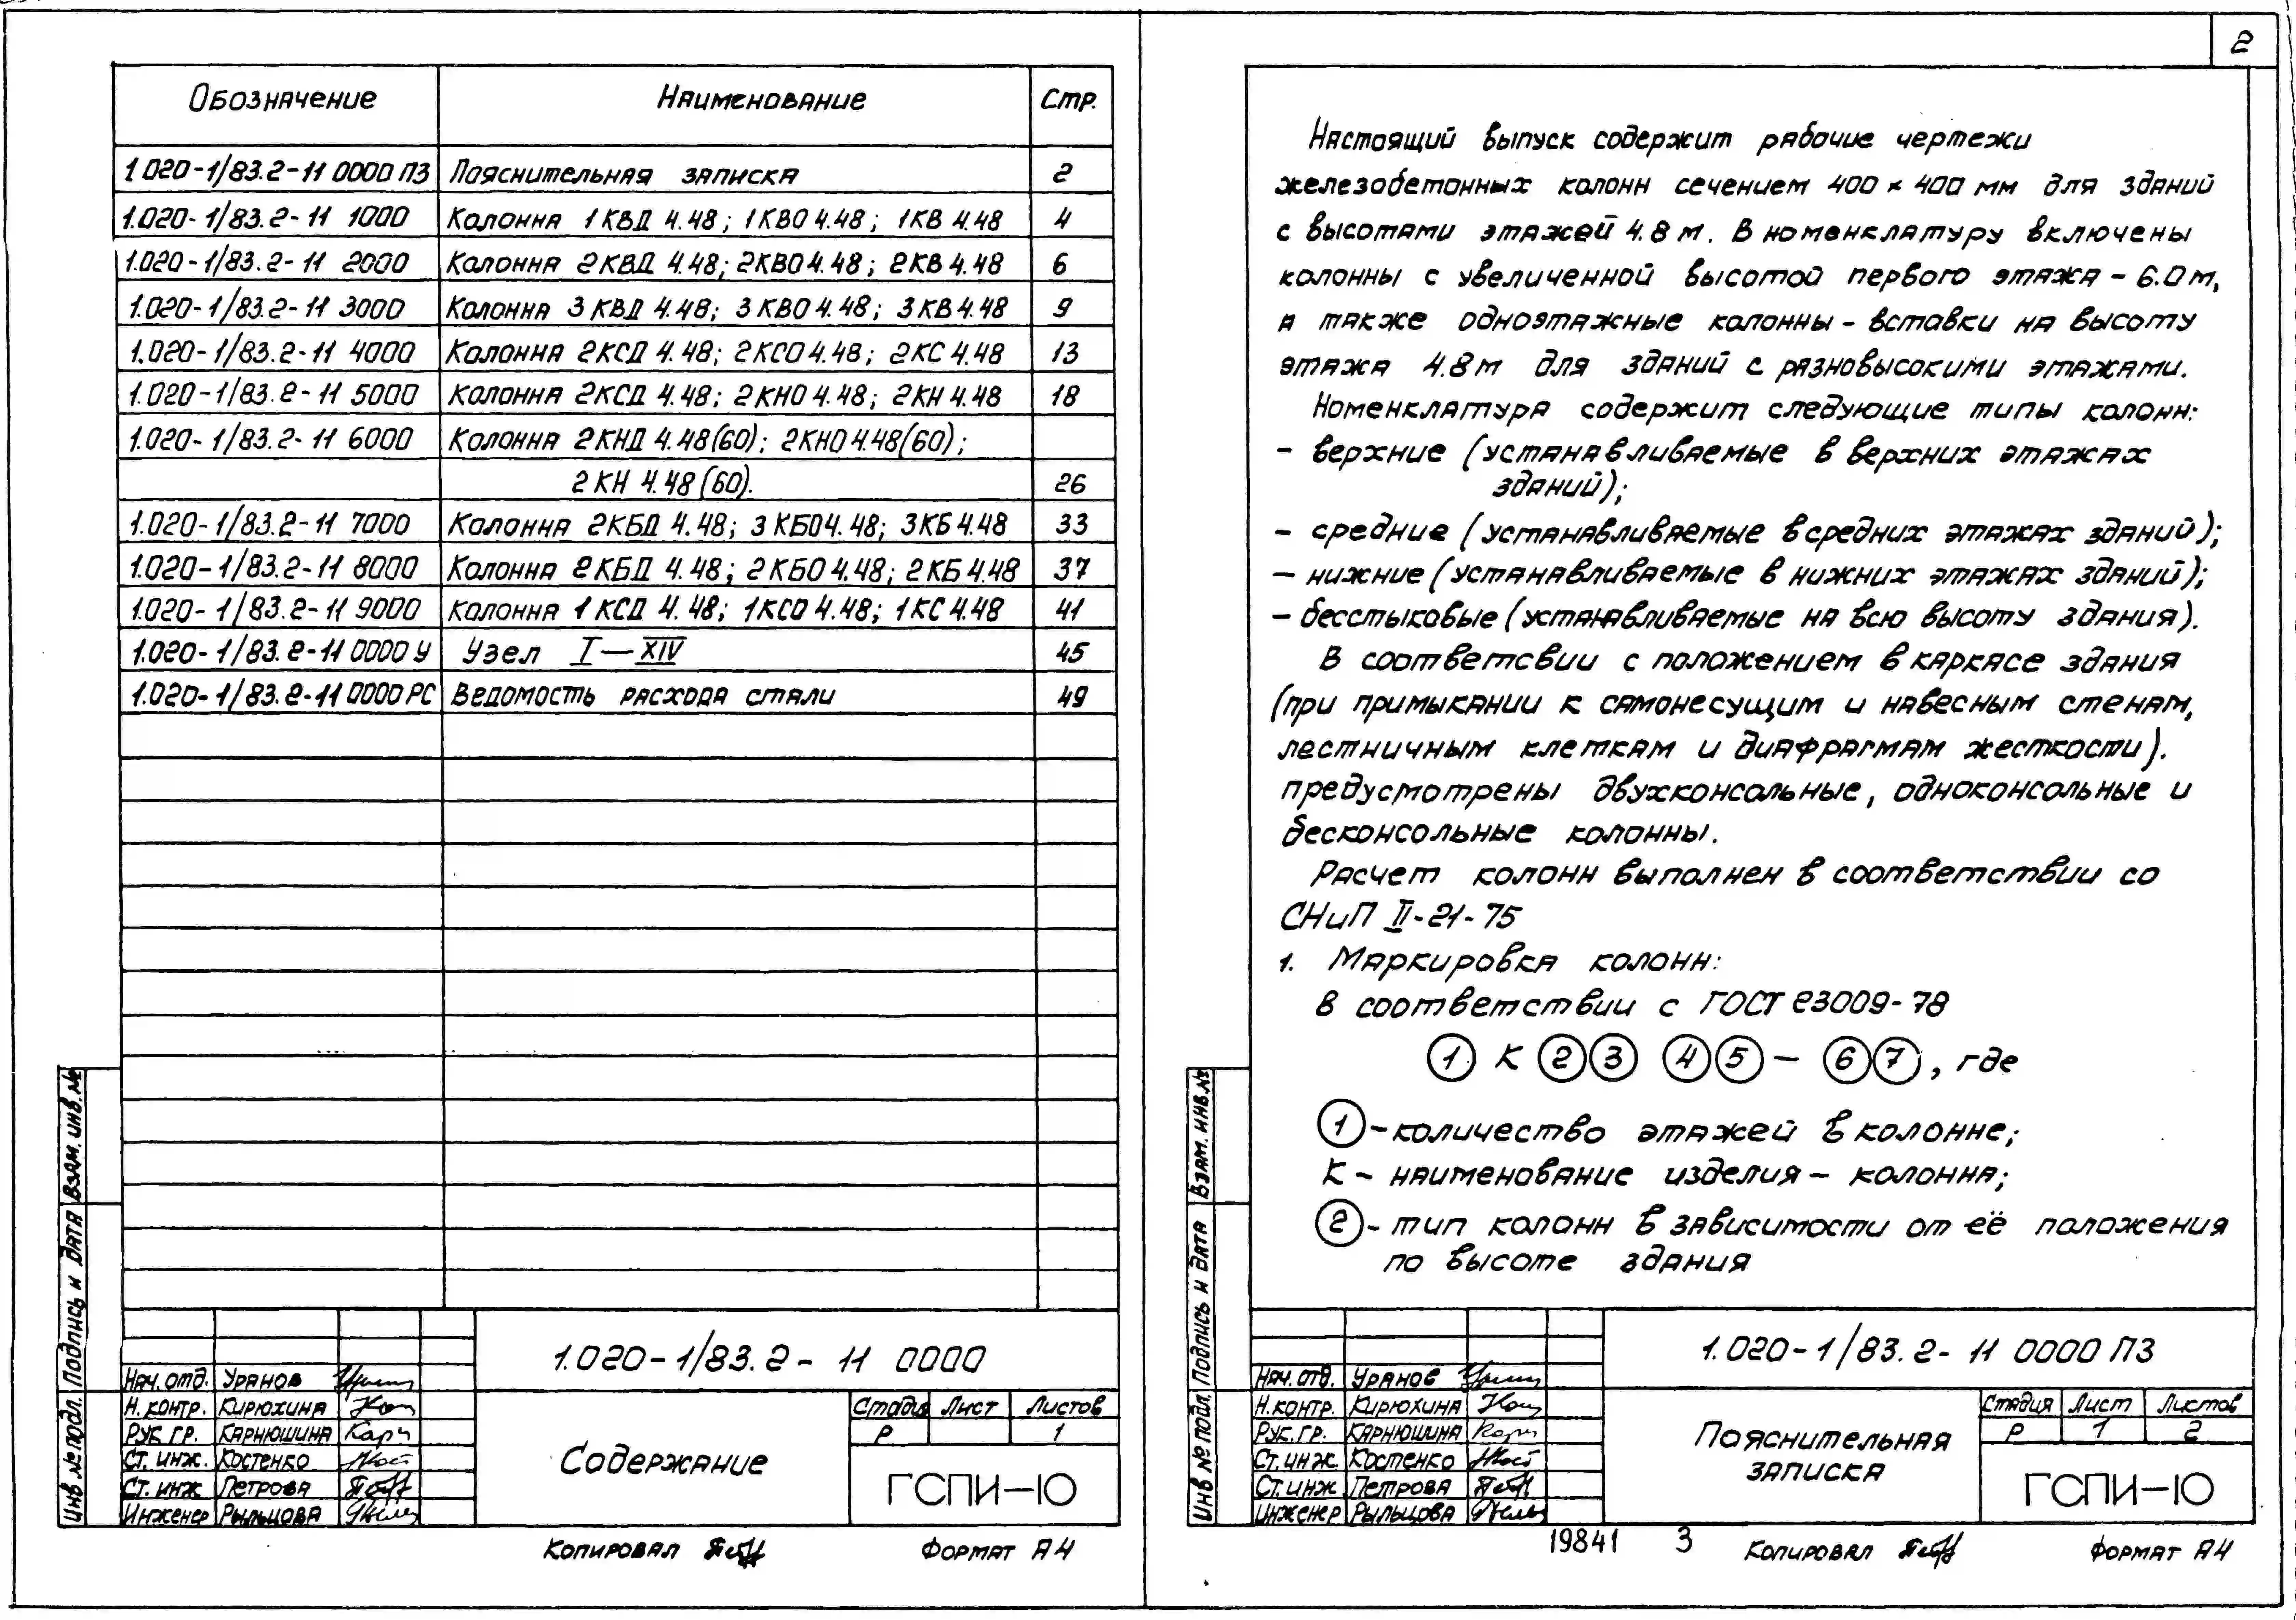 Обозначение Наименование Стр.
1.020-1/83.2-11 0000 ПЗ Пояснительная записка 2
1.020-1/83.2-11 1000 Колонна 1КВД 4.48; 1КВО 4.48; 1КВ 4.48 4
1.020-1/83.2-11 2000 Колонна 2КВД 4.48; 2КВО 4.48; 2КВ 4.48 6
1.020-1/83.2-11 3000 Колонна 3КВД 4.48; 3КВО 4.48; 3КВ 4.48 9
1.020-1/83.2-11 4000 Колонна 2КСД 4.48; 2КСО 4.48; 2КС 4.48 13
1.020-1/83.2-11 5000 Колонна 2КСД 4.48; 2КНО 4.48; 2КН 4.48 18
1.020-1/83.2-11 6000 Колонна 2КНД 4.48(60); 2КНО 4.48(60);
2КН 4.48(60). 26
1.020-1/83.2-11 7000 Колонна 2КБД 4.48; 3КБО 4.48; 3КБ 4.48 33
1.020-1/83.2-11 8000 Колонна 2КБД 4.48; 2КБО 4.48; 2КБ 4.48 37
1.020-1/83.2-11 9000 Колонна 1КСД 4.48; 1КСО 4.48; 1КС 4.48 41
1.020-1/83.2-11 0000 У Узел I—XIV 45
1.020-1/83.2-11 0000 РС Ведомость расхода стали 49
Взам. инв. №
Подпись и дата
Инв № подл.
1.020-1/83.2-11 0000
Нач. отд. Уранов
Н. контр. Кирюхина
Рук. гр. Карнюшина
Ст. инж. Костенко
Ст. инж Петрова
Инженер Рыльцова
Содержание
Стадия Лист Листов
Р 1
ГСПИ-10
Копировал Формат А4
2
Настоящий выпуск содержит рабочие чертежи
железобетонных колонн сечением 400 × 400 мм для зданий
с высотами этажей 4.8 м. В номенклатуру включены
колонны с увеличенной высотой первого этажа - 6.0 м,
а также одноэтажные колонны - вставки на высоту
этажа 4.8 м для зданий с разновысокими этажами.
Номенклатура содержит следующие типы колонн:
- верхние (устанавливаемые в верхних этажах
зданий);
- средние (устанавливаемые в средних этажах зданий);
- нижние (устанавливаемые в нижних этажах зданий);
- бесстыковые (устанавливаемые на всю высоту здания).
В соответсвии с положением в каркасе здания
(при примыкании к самонесущим и навесным стенам,
лестничным клеткам и диафрагмам жесткости).
предусмотрены двухконсольные, одноконсольные и
бесконсольные колонны.
Расчет колонн выполнен в соответствии со
СНиП II-21-75
1. Маркировка колонн:
В соответствии с ГОСТ 23009-78
① К ②③ ④⑤ - ⑥⑦, где
① - количество этажей в колонне;
К - наименование изделия - колонна;
② - тип колонн в зависимости от её положения
по высоте здания
Взам. инв. №
Подпись и дата
Инв № подл.
1.020-1/83.2-11 0000 ПЗ
Нач. отд. Уранов
Н. контр. Кирюхина
Рук. гр. Карнюшина
Ст. инж. Костенко
Ст. инж Петрова
Инженер Рыльцова
Пояснительная
записка
Стадия Лист Листов
Р 1 2
ГСПИ-10
19841 3 Копировал Формат А4